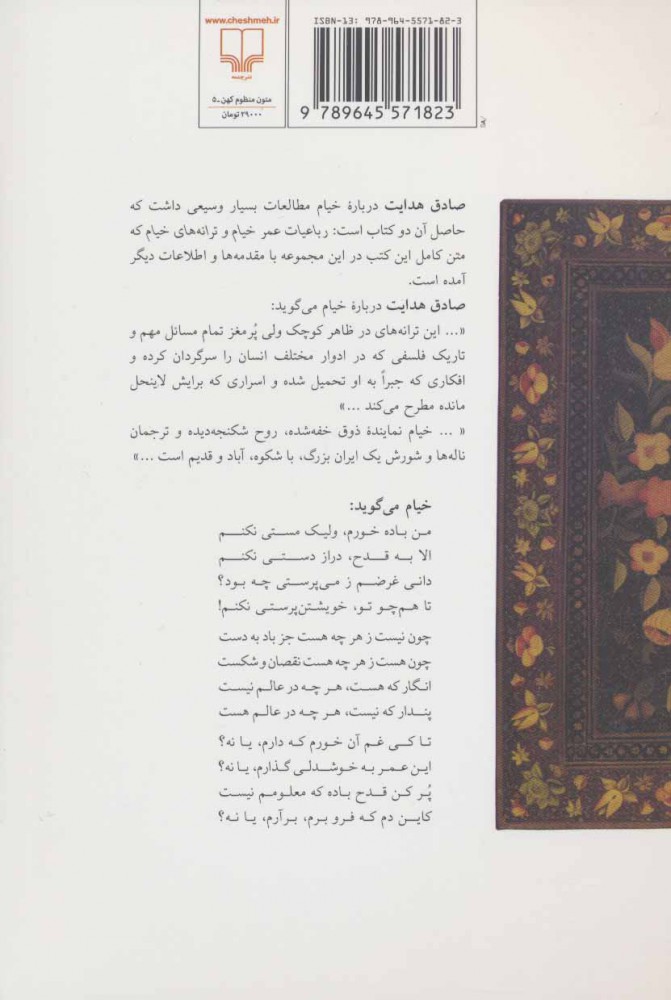 www.cheshmeh.ir
ISBN-13: 978-964-5571-82-3
نشرچشمه
متون منظوم کهن ـ ۵
۲۹۰۰۰ تومان
9 789645 571823
صادق هدایت دربارهٔ خیام مطالعات بسیار وسیعی داشت که
حاصل آن دو کتاب است: رباعیات عمر خیام و ترانه‌های خیام که
متن کامل این کتب در این مجموعه با مقدمه‌ها و اطلاعات دیگر
آمده است.
صادق هدایت دربارهٔ خیام می‌گوید:
«... این ترانه‌های در ظاهر کوچک ولی پُرمغز تمام مسائل مهم و
تاریک فلسفی که در ادوار مختلف انسان را سرگردان کرده و
افکاری که جبراً به او تحمیل شده و اسراری که برایش لاینحل
مانده مطرح می‌کند ...»
« ... خیام نمایندهٔ ذوق خفه‌شده، روح شکنجه‌دیده و ترجمان
ناله‌ها و شورش یک ایران بزرگ، با شکوه، آباد و قدیم است ...»
خیام می‌گوید:
من باده خورم، ولیک مستی نکنم
الا به قدح، دراز دستی نکنم
دانی غرضم ز می‌پرستی چه بود؟
تا هم‌چو تو، خویشتن‌پرستی نکنم!
چون نیست ز هر چه هست جز باد به دست
چون هست ز هر چه هست نقصان و شکست
انگار که هست، هر چه در عالم نیست
پندار که نیست، هر چه در عالم هست
تا کی غم آن خورم که دارم، یا نه؟
این عمر به خوشدلی گذارم، یا نه؟
پُر کن قدح باده که معلومم نیست
کاین دم که فرو برم، برآرم، یا نه؟